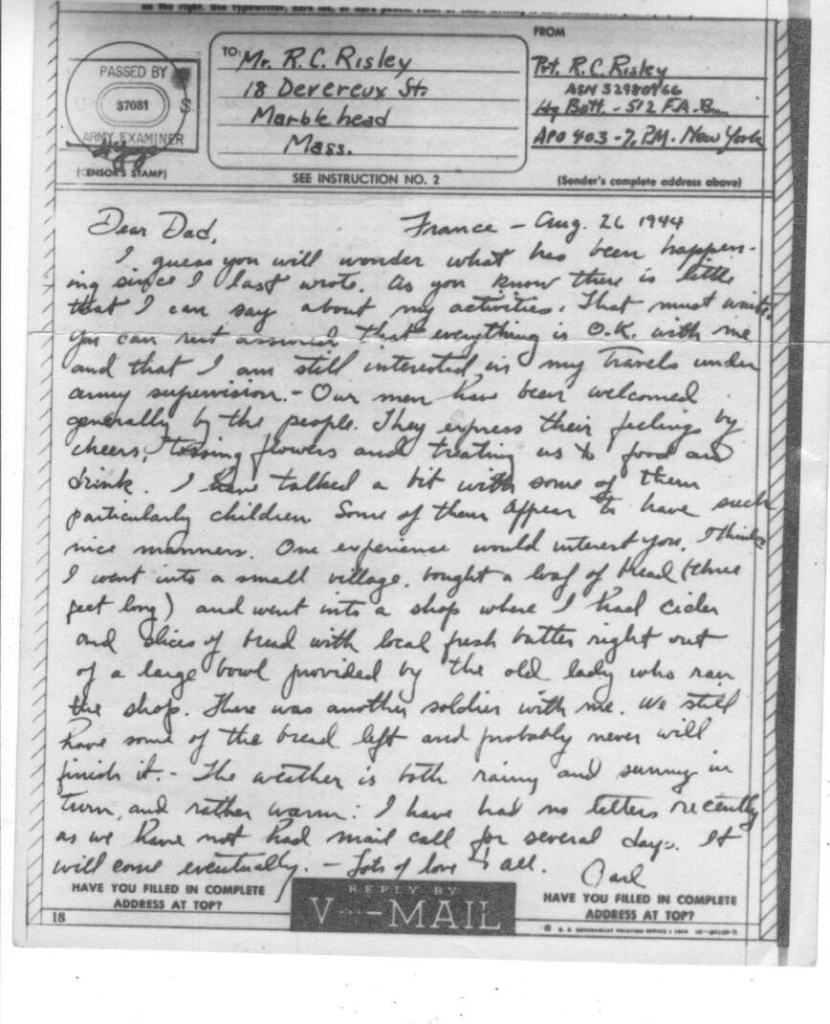 on the right. Use typewriter, dark ink, or dark pencil.
PASSED BY
U S
37081
ARMY EXAMINER
(CENSOR'S STAMP)
TO: Mr. R.C. Risley
18 Devereux St.
Marblehead
Mass.
SEE INSTRUCTION NO. 2
FROM
Pvt. R.C. Risley
ASN 32980966
Hq Batt. - 512 F.A. Bn.
APO 403 - % P.M. New York
(Sender's complete address above)
Dear Dad, France - Aug. 26 1944
I guess you will wonder what has been happen-
ing since I last wrote. As you know there is little
that I can say about my activities. That must wait.
You can rest assured that everything is O.K. with me
and that I am still interested in my travels under
army supervision. - Our men have been welcomed
generally by the people. They express their feelings by
cheers, tossing flowers and treating us to food and
drink. I have talked a bit with some of them
particularly children. Some of them appear to have such
nice manners. One experience would interest you, I think
I went into a small village, bought a loaf of bread (three
feet long) and went into a shop where I had cider
and slices of bread with local fresh butter right out
of a large bowl provided by the old lady who ran
the shop. There was another soldier with me. We still
have some of the bread left and probably never will
finish it. - The weather is both rainy and sunny in
turn, and rather warm: I have had no letters recently
as we have not had mail call for several days. It
will come eventually. - Lots of love to all. Carl
HAVE YOU FILLED IN COMPLETE
ADDRESS AT TOP?
REPLY BY
V···—MAIL
HAVE YOU FILLED IN COMPLETE
ADDRESS AT TOP?
18
U. S. GOVERNMENT PRINTING OFFICE